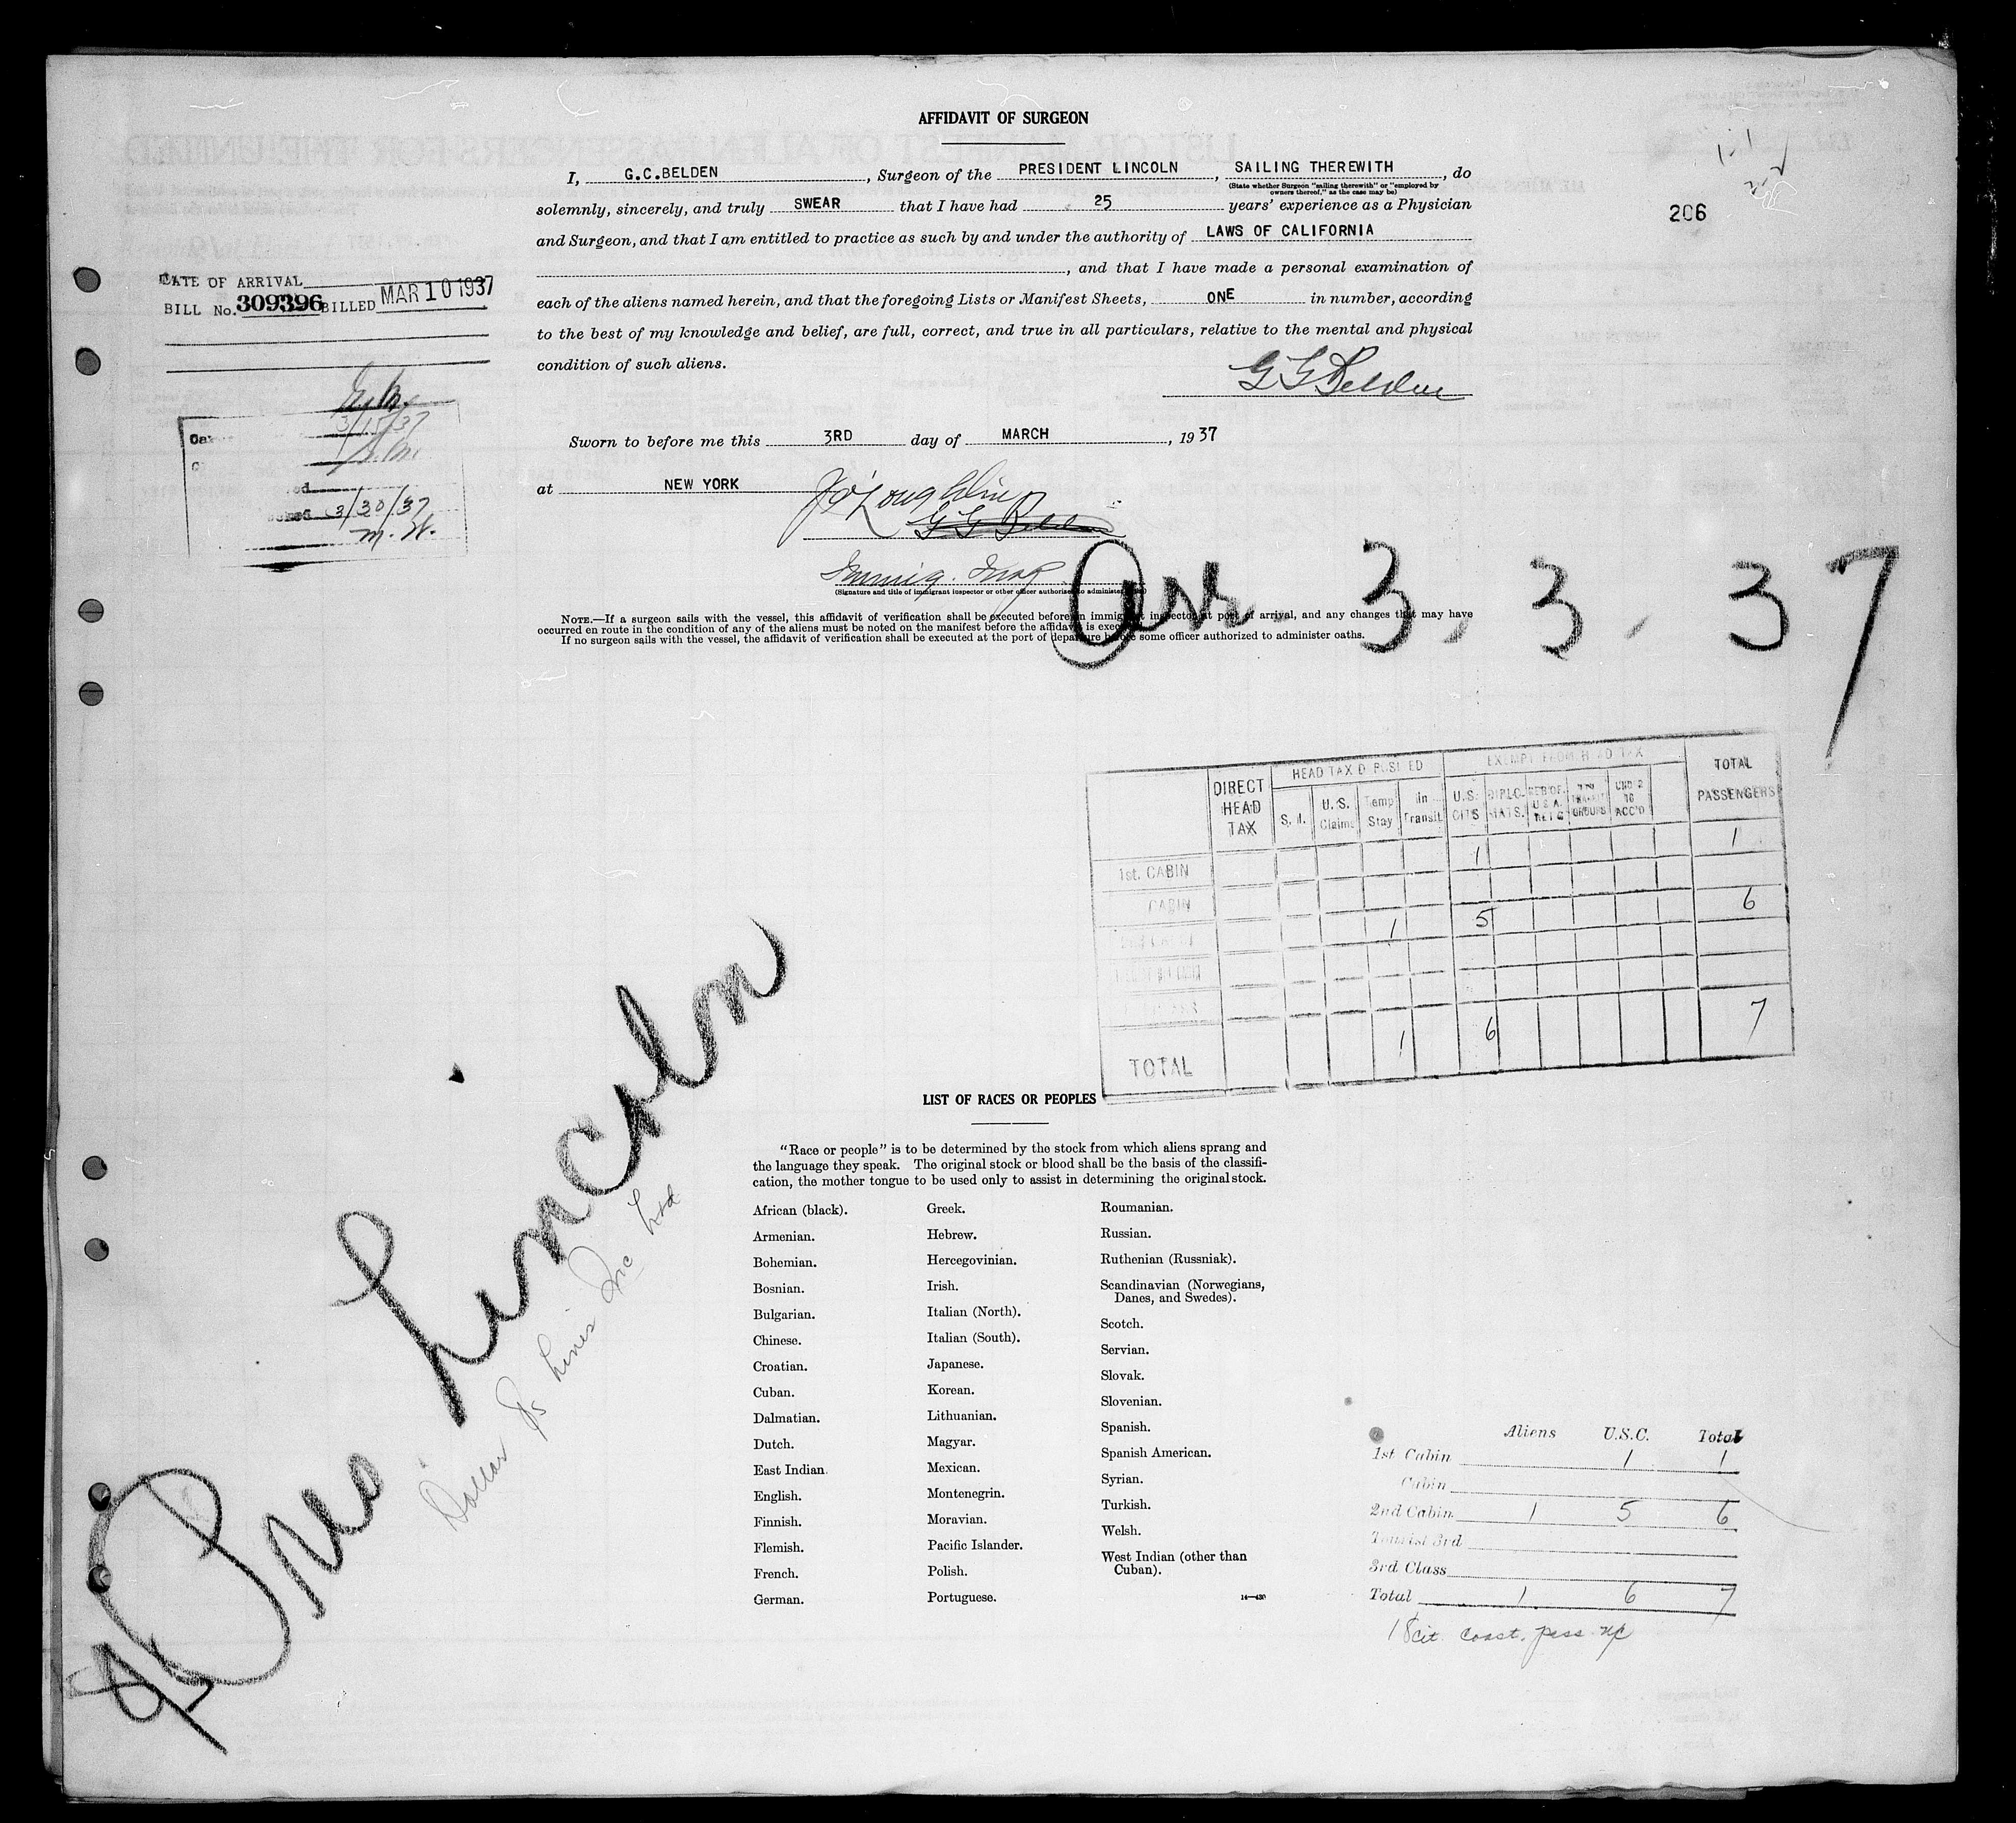 AFFIDAVIT OF SURGEON
I, G.C.BELDEN, Surgeon of the PRESIDENT LINCOLN, SAILING THEREWITH, do
(State whether Surgeon "sailing therewith" or "employed by
owners thereof," as the case may be)
solemnly, sincerely, and truly SWEAR that I have had 25 years' experience as a Physician
and Surgeon, and that I am entitled to practice as such by and under the authority of LAWS OF CALIFORNIA
, and that I have made a personal examination of
each of the aliens named herein, and that the foregoing Lists or Manifest Sheets, ONE in number, according
to the best of my knowledge and belief, are full, correct, and true in all particulars, relative to the mental and physical
condition of such aliens.
206
DATE OF ARRIVAL
BILL No. 309396 BILLED MAR 10 1937
3/15/37
3/30/37
M. W.
G G Belden
Sworn to before me this 3RD day of MARCH, 1937
at NEW YORK
J O'Loughlin
G G Belden
Immig. Insp
(Signature and title of immigrant inspector or other officer authorized to administer oaths)
Arr. 3, 3, 37
NOTE.—If a surgeon sails with the vessel, this affidavit of verification shall be executed before an immigrant inspector at port of arrival, and any changes that may have
occurred en route in the condition of any of the aliens must be noted on the manifest before the affidavit is executed.
If no surgeon sails with the vessel, the affidavit of verification shall be executed at the port of departure before some officer authorized to administer oaths.
DIRECT HEAD TAX
HEAD TAX DEPOSITED
EXEMPT FROM HEAD TAX
TOTAL PASSENGERS
U.S. Claims Temp Stay In Transit U.S. CITS DIPLOMATS.
1st. CABIN 1 1
CABIN
1 5 6
TOTAL 1 6 7
Pres Lincoln
Dollar SS Lines Inc Ltd
LIST OF RACES OR PEOPLES
"Race or people" is to be determined by the stock from which aliens sprang and
the language they speak. The original stock or blood shall be the basis of the classifi-
cation, the mother tongue to be used only to assist in determining the original stock.
African (black).
Armenian.
Bohemian.
Bosnian.
Bulgarian.
Chinese.
Croatian.
Cuban.
Dalmatian.
Dutch.
East Indian.
English.
Finnish.
Flemish.
French.
German.
Greek.
Hebrew.
Hercegovinian.
Irish.
Italian (North).
Italian (South).
Japanese.
Korean.
Lithuanian.
Magyar.
Mexican.
Montenegrin.
Moravian.
Pacific Islander.
Polish.
Portuguese.
Roumanian.
Russian.
Ruthenian (Russniak).
Scandinavian (Norwegians,
Danes, and Swedes).
Scotch.
Servian.
Slovak.
Slovenian.
Spanish.
Spanish American.
Syrian.
Turkish.
Welsh.
West Indian (other than
Cuban).
14—430
Aliens U.S.C. Total
1st Cabin 1 1
Cabin
2nd Cabin 1 5 6
Tourist 3rd
3rd Class
Total 1 6 7
coast. pass.